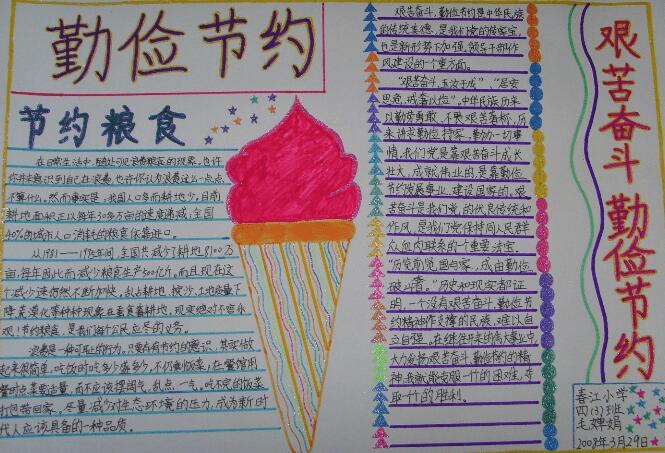 勤俭节约
节约粮食
在日常生活中，随处可见浪费粮食的现象。也许
你并未意识到自己在浪费，也许你认为浪费这么一点点
不算什么。然而事实是：我国人口多而耕地少，目前
耕地面积正以每年30多万亩的速度递减；全国
40%的城市人口消耗的粮食依靠进口。
从1981——1995年间，全国共减少了耕地8100万
亩，每年因此而减少粮食生产500亿斤。而且现在这
个减少速仍然不断加快。乱占耕地、挖沙、土地质量下
降荒漠化等种种现象在重复着耕地，现实绝对不容乐
观！节约粮食，是我们每个公民应尽的义务。
浪费是一种可耻的行为。只要存有节约的意识，其实做
起来很简单：吃饭时吃多少盛多少，不扔剩饭菜；在餐馆用
餐时点菜要适量，而不应该摆阔气，乱点一气。吃不完的饭菜
打包带回家。尽量减少对生态环境的压力，成为新时
代人应该具备的一种品质。
艰苦奋斗，勤俭节约是中华民族
的传统美德，是我们党的传家宝，
也是新形势下加强领导干部作
风建设的一个重方面。
“艰苦奋斗，玉汝于成”，“居安
思危，戒奢以俭”。中华民族历来
以勤劳勇敢、不畏艰苦著称，历
来讲求勤俭持家，勤为一切事
情，我们党是靠艰苦奋斗成长
壮大，成就伟业的，是靠勤俭
节约发展事业，建设国家的。艰
苦奋斗是我们党的优良传统和
作风，是我们党保持同人民群
众血肉联系的个重要法宝。
“历览前贤国与家，成由勤俭
破由奢。”历史和现实都证
明，一个没有艰苦奋斗、勤俭节
约精神作支撑的民族，难以自
立自强。在继往开来的伟大事业中，
大力发扬艰苦奋斗勤俭节约的精
神，我就能克服一个的困难，夺
取一个的胜利。
艰苦奋斗 勤俭节约
春江小学
四(3)班
毛婵娟
2008年3月29日